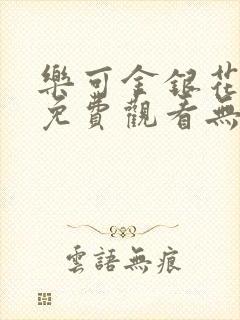 樂可金銀花
免費觀看無
雲語無痕